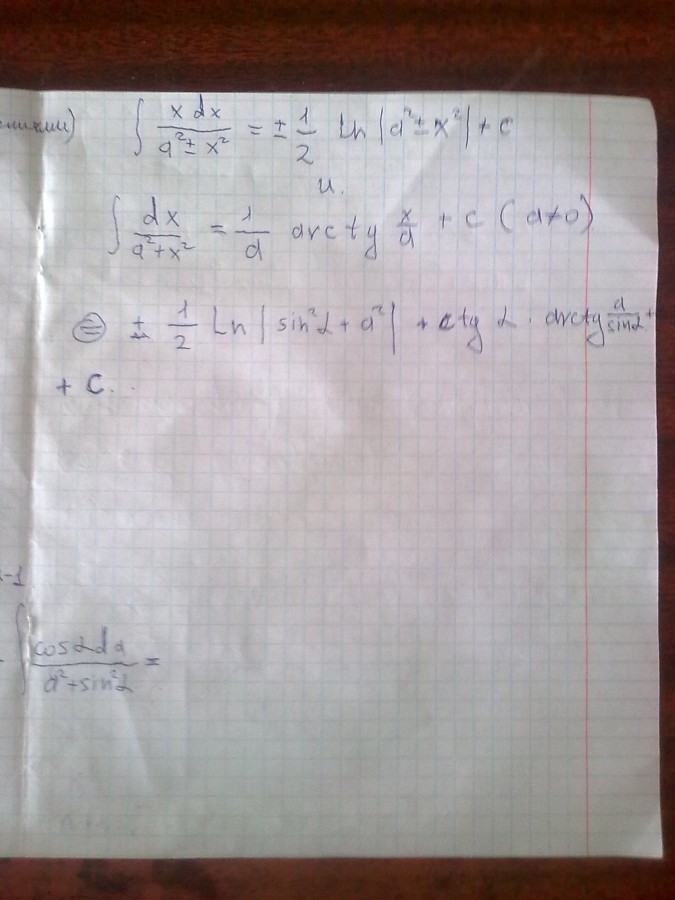 ∫ x dx / (a² ± x²) = ± 1/2 Ln |a² ± x²| + c
и.
∫ dx / (a² + x²) = 1/a arctg x/a + c (a ≠ 0)
⊜ ± 1/2 Ln |sin²α + a²| + ctg α · arctg a/sinα +
+ C..
-1
∫ cosα da / (a² + sin²α) =